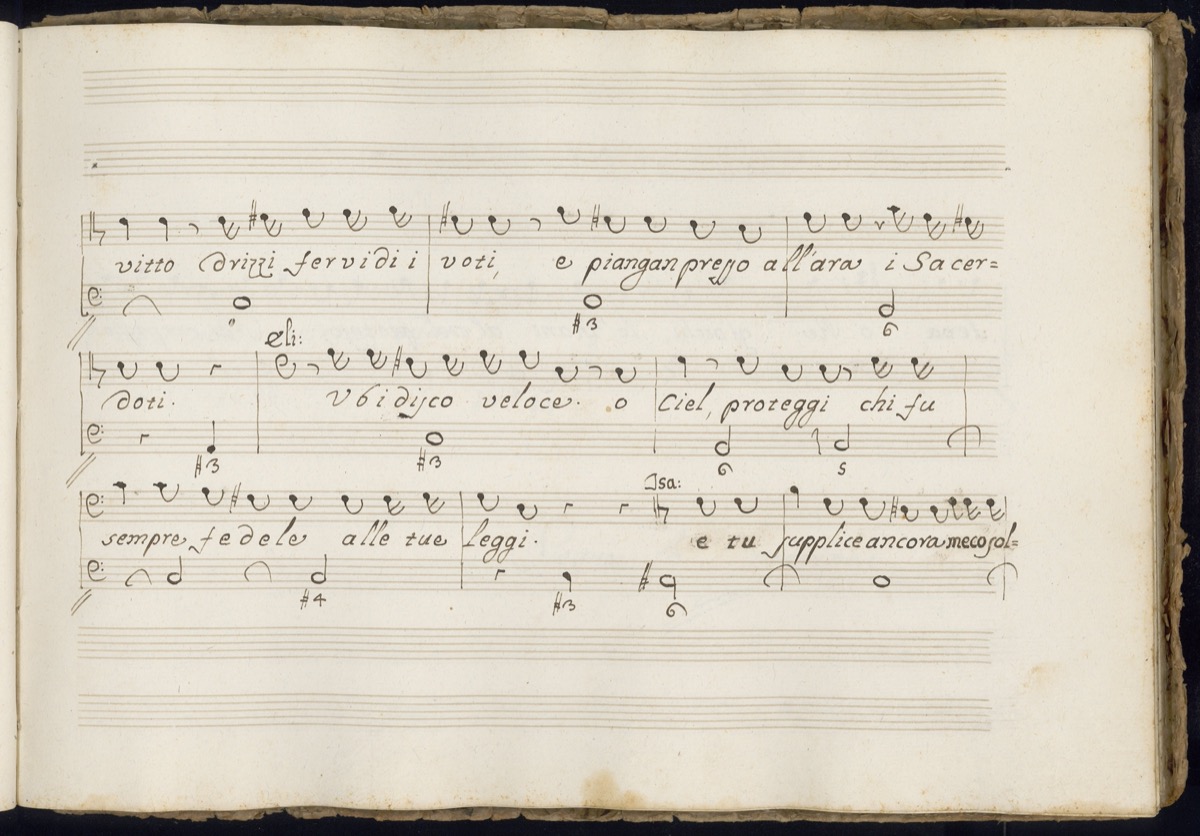 vitto drizzi fervidi i voti, e piangan presso all'ara i Sacer=
#3 6
eli:
doti. Vbidisco veloce. o Ciel, proteggi chi fu
#3 #3 6 5
Isa:
sempre fedele alle tue leggi. e tu supplice ancora meco sol=
#4 #3 6